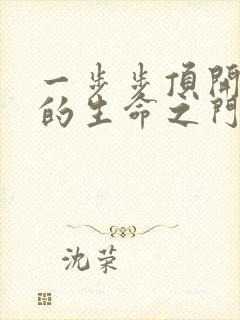 一步步頂開
的生命之門
沈荣